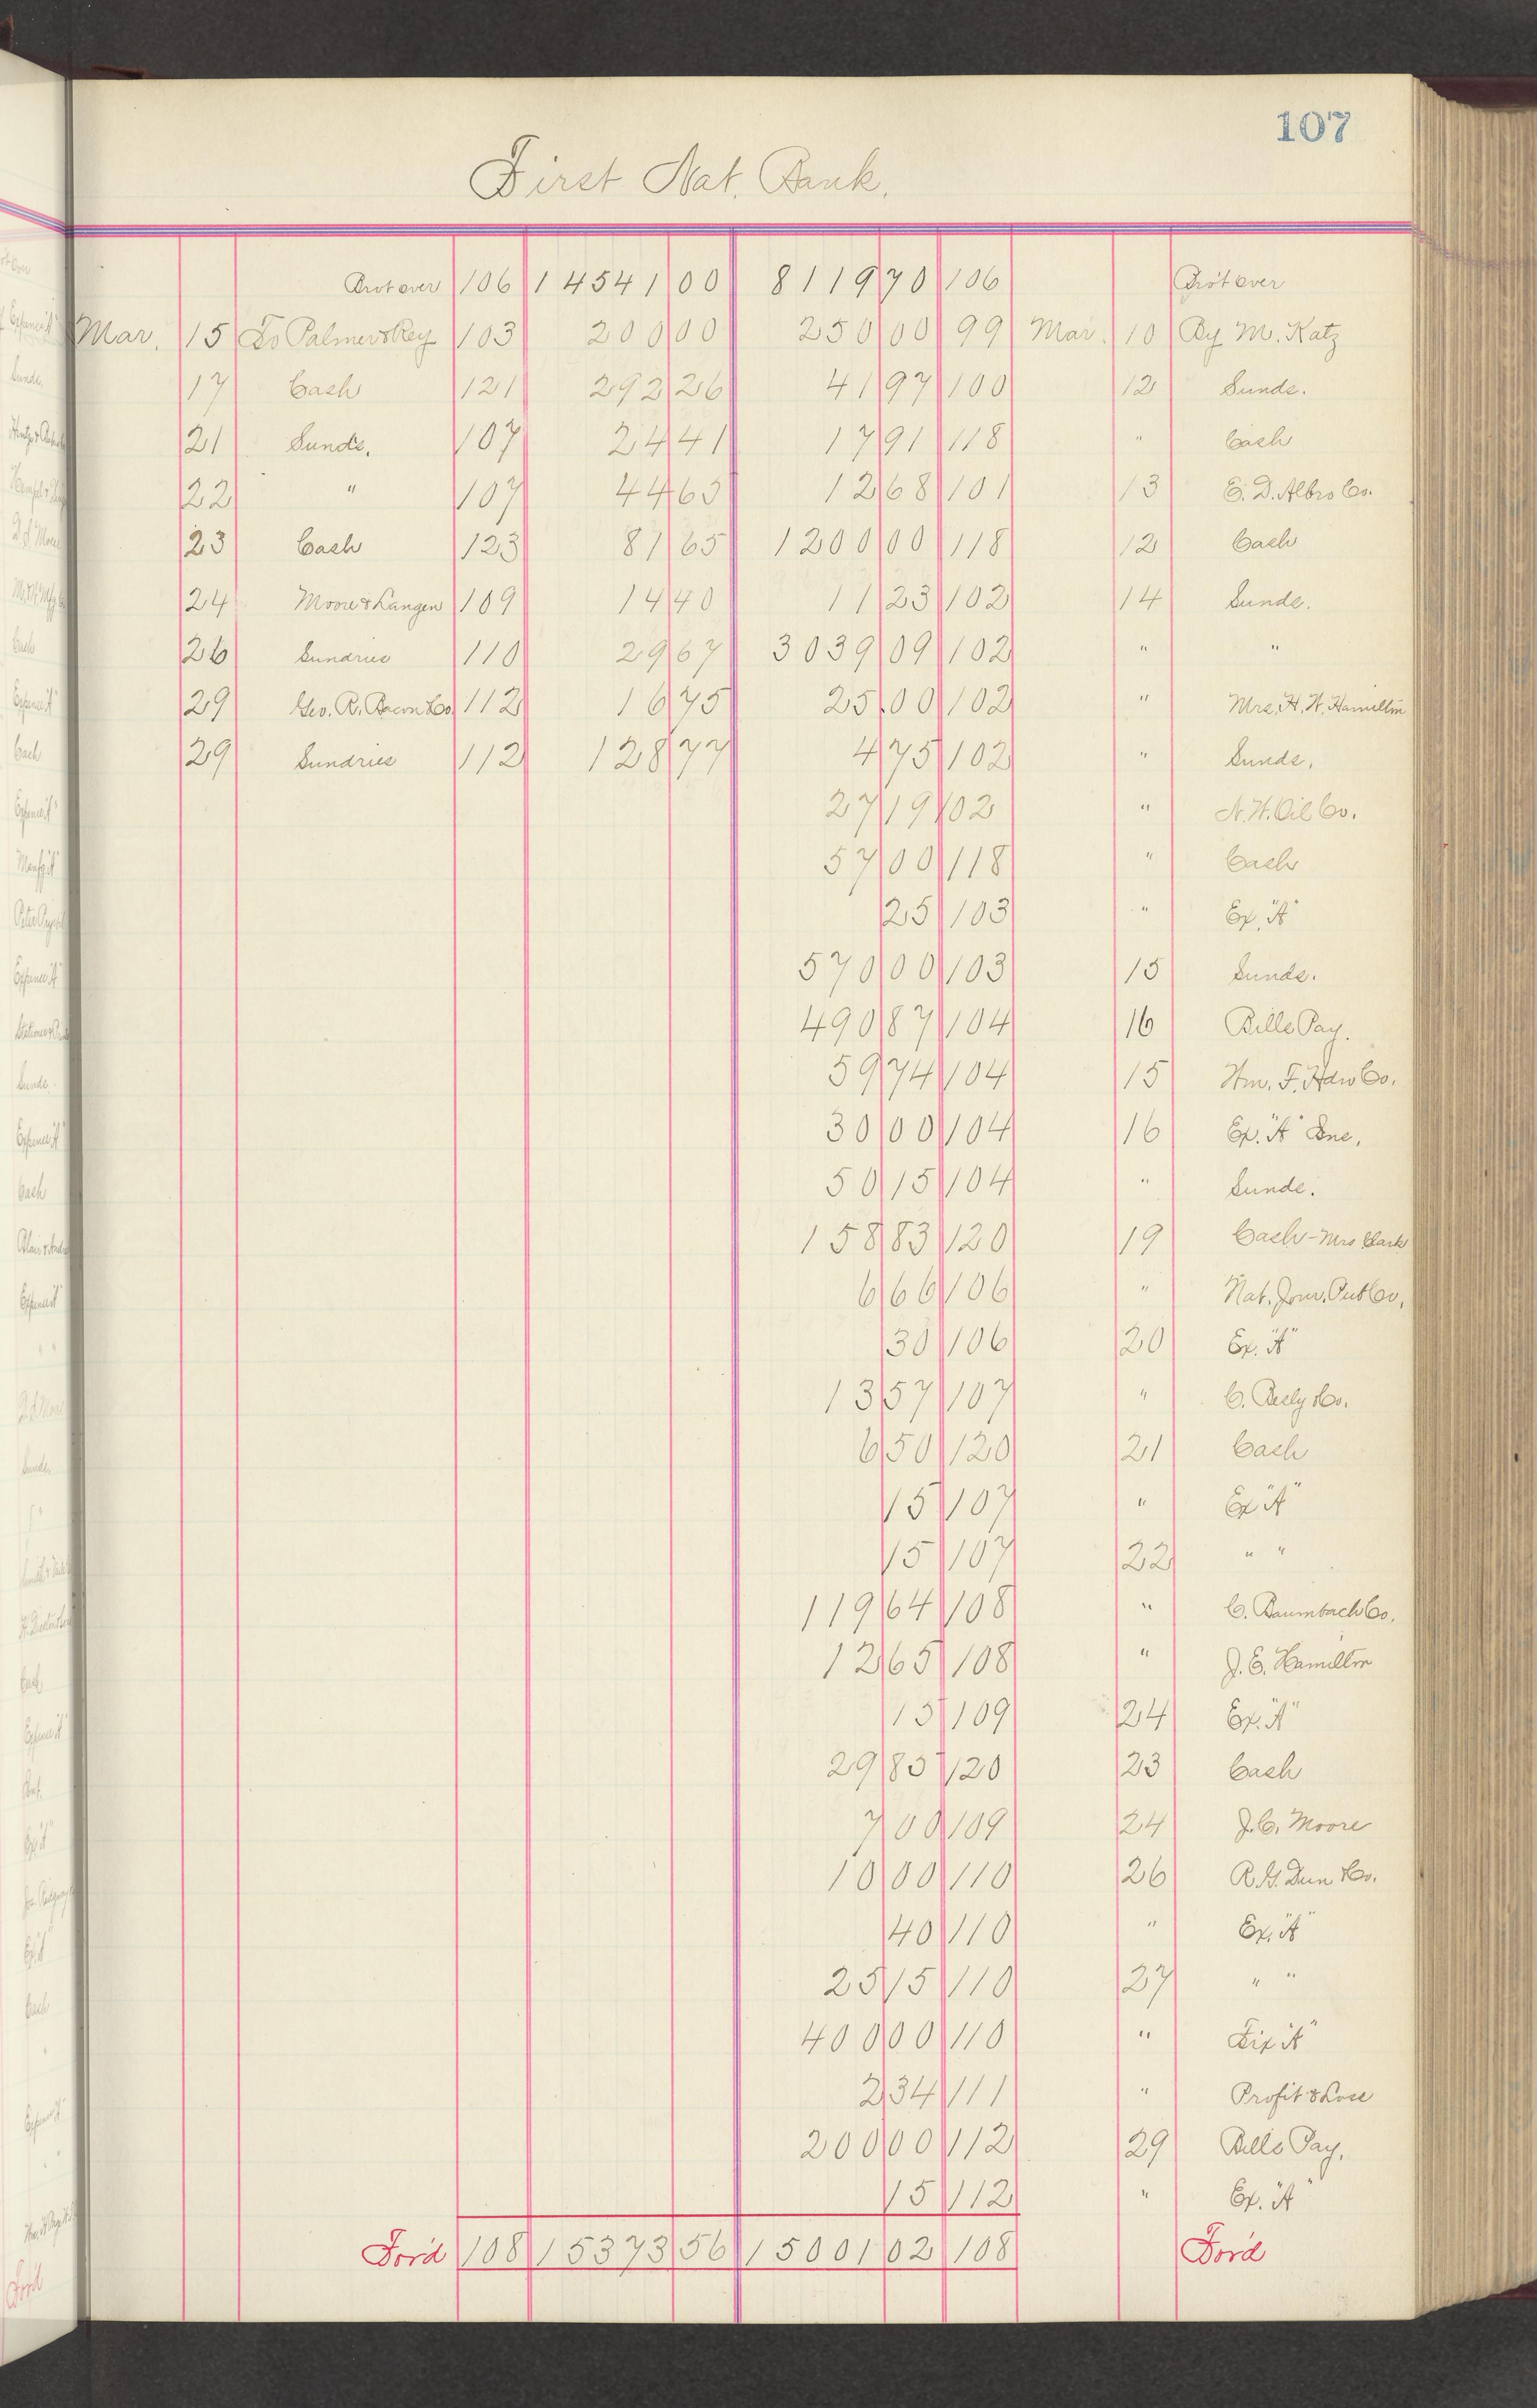 107
First Nat. Bank.
Brot over 106 14541 00 8119 70 106 Brot over
Mar. 15 To Palmer & Rey 103 200 00 250 00 99 Mar. 10 By M. Katz
17 Cash 121 292 26 41 97 100 12 Sunds.
21 Sunds. 107 24 41 17 91 118 " Cash
22 " 107 44 65 12 68 101 13 E. D. Albro Co.
23 Cash 123 81 65 1200 00 118 12 Cash
24 Moore & Langen 109 14 40 11 23 102 14 Sunds.
26 Sundries 110 29 67 3039 09 102 " "
29 Geo. R. Bacon & Co. 112 16 75 25 00 102 " Mrs. H. W. Hamilton
29 Sundries 112 128 77 4 75 102 " Sunds.
27 19 102 " N. W. Oil Co.
57 00 118 " Cash
25 103 " Ex. "A"
570 00 103 15 Sunds.
490 87 104 16 Bills Pay.
59 74 104 15 Wm. F. Hdw Co.
30 00 104 16 Ex. "A" Ins.
50 15 104 " Sunds.
158 83 120 19 Cash - Mrs Clark
6 66 106 " Nat. Jour. Pub Co.
30 106 20 Ex. "A"
13 57 107 " C. Besly & Co.
6 50 120 21 Cash
15 107 " Ex "A"
15 107 22 " "
119 64 108 " C. Baumbach Co.
12 65 108 " J. E. Hamilton
15 109 24 Ex. "A"
29 85 120 23 Cash
7 00 109 24 J. C. Moore
10 00 110 26 R. G. Dun & Co.
40 110 " Ex. "A"
25 15 110 27 " "
400 00 110 " Fix "A"
2 34 111 " Profit & Loss
200 00 112 29 Bills Pay.
15 112 " Ex. "A"
For'd 108 15373 56 15001 02 108 For'd